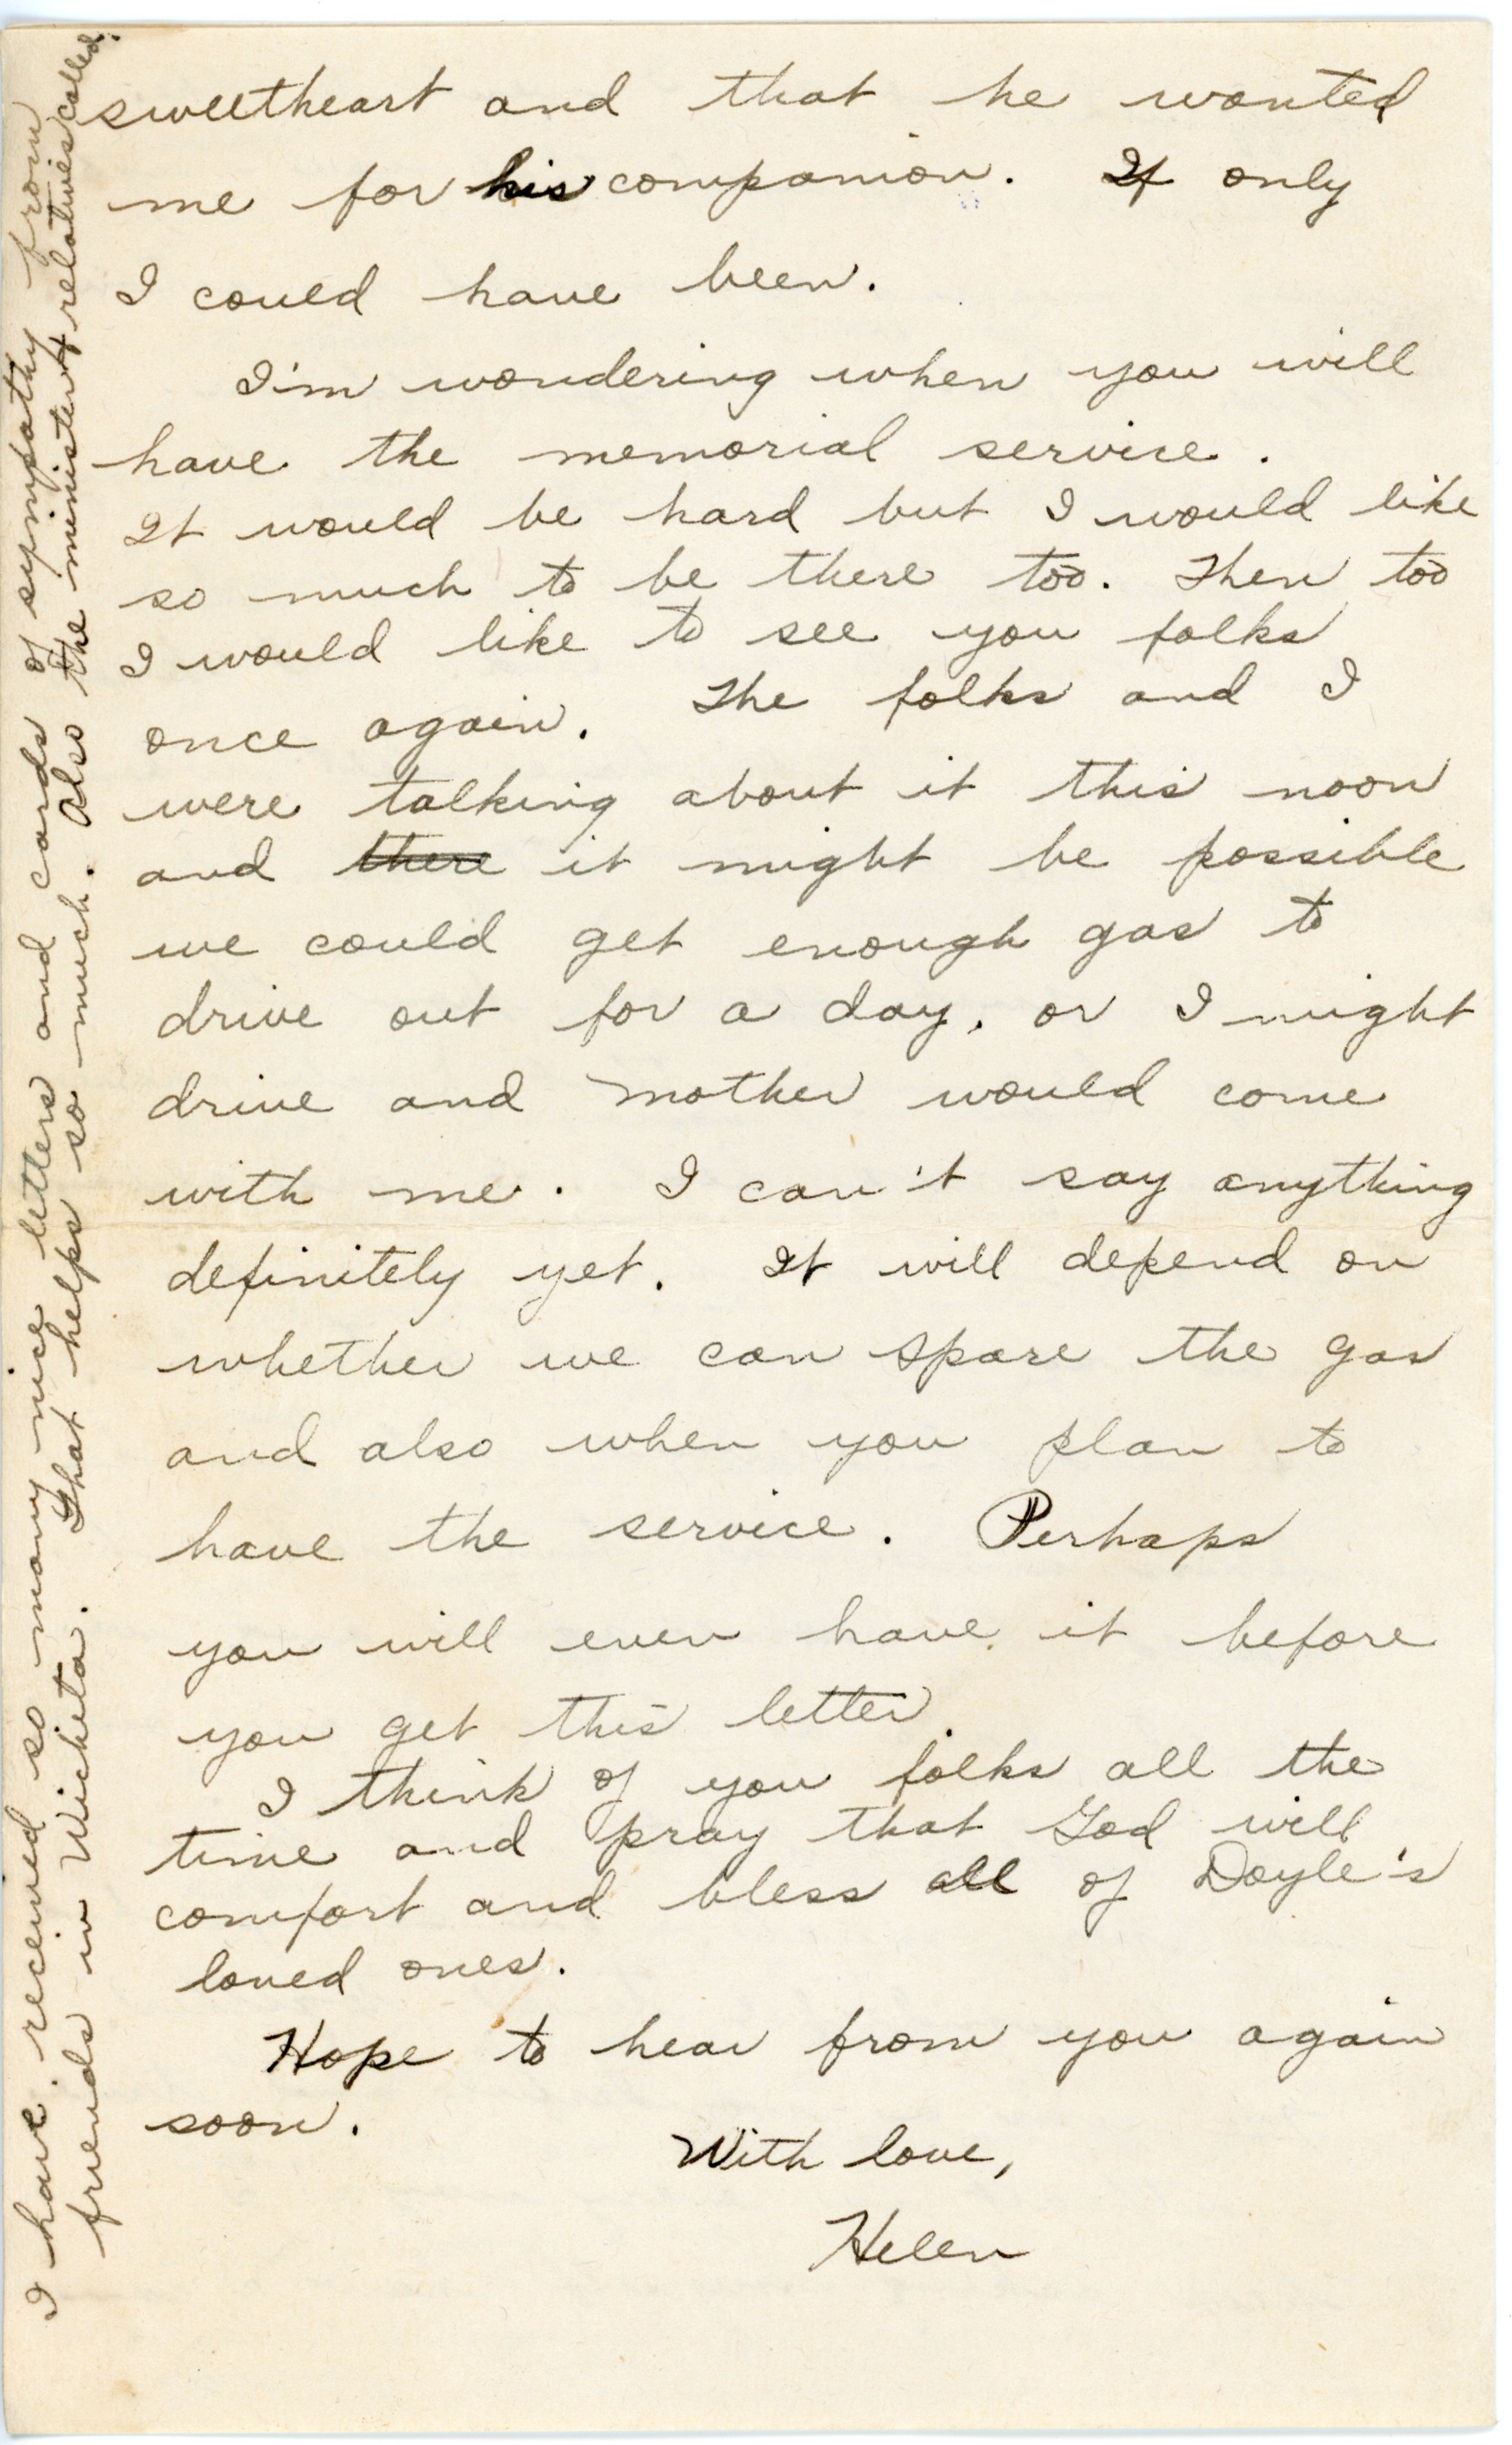 sweetheart and that he wanted
me for his companion. If only
I could have been.
I'm wondering when you will
have the memorial service.
It would be hard but I would like
so much to be there too. Then too
I would like to see you folks
once again. The folks and I
were talking about it this noon
and there it might be possible
we could get enough gas to
drive out for a day, or I might
drive and Mother would come
with me. I can't say anything
definitely yet. It will depend on
whether we can spare the gas
and also when you plan to
have the service. Perhaps
you will even have it before
you get this letter.
I think of you folks all the
time and pray that God will
comfort and bless all of Doyle's
loved ones.
Hope to hear from you again
soon.
With love,
Helen
I have received so many nice letters and cards of sympathy from
friends in Wichita. That helps so much. Also the minister & relatives called.